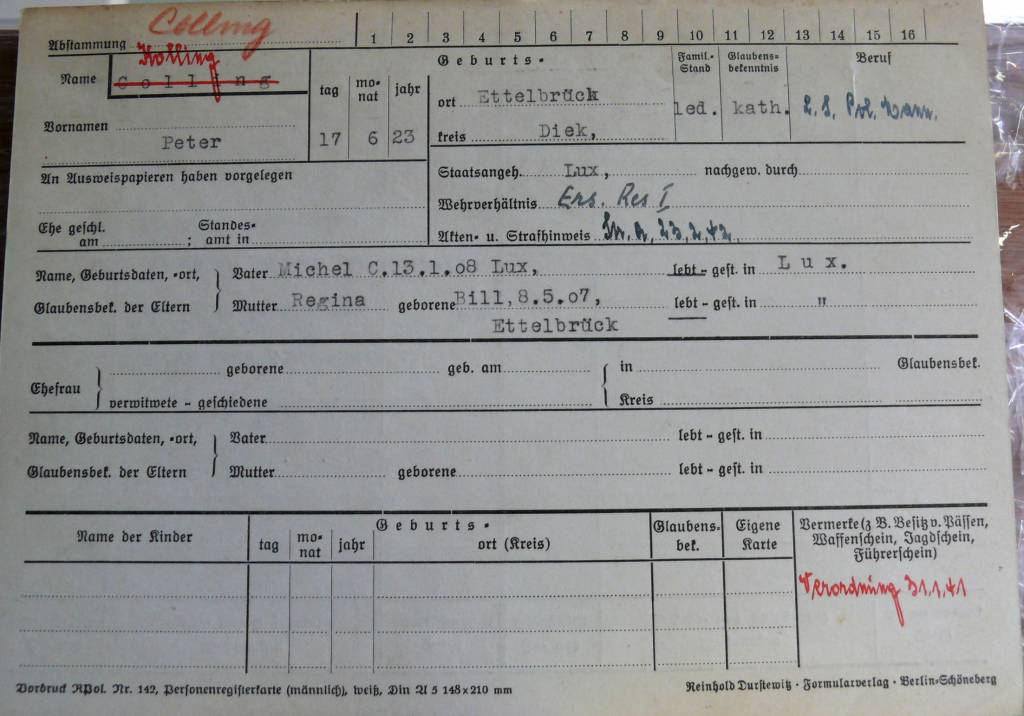 Colling
Abstammung 1 2 3 4 5 6 7 8 9 10 11 12 13 14 15 16
Kolling
Name Colling
tag mo-nat jahr
Geburts-
Famil.-Stand Glaubens-bekenntnis Beruf
ort Ettelbrück
led. kath.
Vornamen
Peter 17 6 23
kreis Diek,
An Ausweispapieren haben vorgelegen
Staatsangeh. Lux, nachgew. durch
Wehrverhältnis Ers. Res I
Ehe geschl. am ; Standes-amt in
Akten- u. Strafhinweis 23,2,42
Name, Geburtsdaten, -ort, Vater Michel C.13.1.08 Lux, lebt - gest. in Lux.
Glaubensbek. der Eltern Mutter Regina geborene Bill,8.5.07, lebt - gest. in "
Ettelbrück
Ehefrau geborene geb. am in Glaubensbek.
verwitwete - geschiedene Kreis
Name, Geburtsdaten, -ort, Vater lebt - gest. in
Glaubensbek. der Eltern Mutter geborene lebt - gest. in
Name der Kinder
Geburts-
tag mo-nat jahr ort (Kreis)
Glaubens-bek.
Eigene Karte
Vermerke (z B. Besitz v. Pässen,
Waffenschein, Jagdschein,
Führerschein)
Verordnung 31,1,41
Vordruck RPol. Nr. 142, Personenregisterkarte (männlich), weiß, Din A 5 148x210 mm
Reinhold Durstewitz · Formularverlag · Berlin-Schöneberg